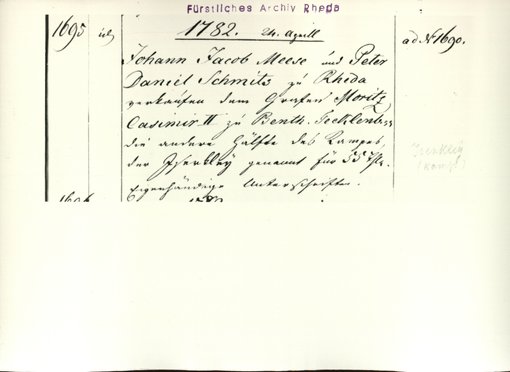 Fürstliches Archiv Rheda
1695
1782. 24. April
ad N 1690.
Johann Jacob Meese und Peter
Daniel Schmitz zu Rheda
verkaufen dem Grafen Moritz
Casimir II zu Benth. Tecklenb.
die andere Hälfte des Kampes,
der genannt für 55
Eigenhändige Unterschriften.